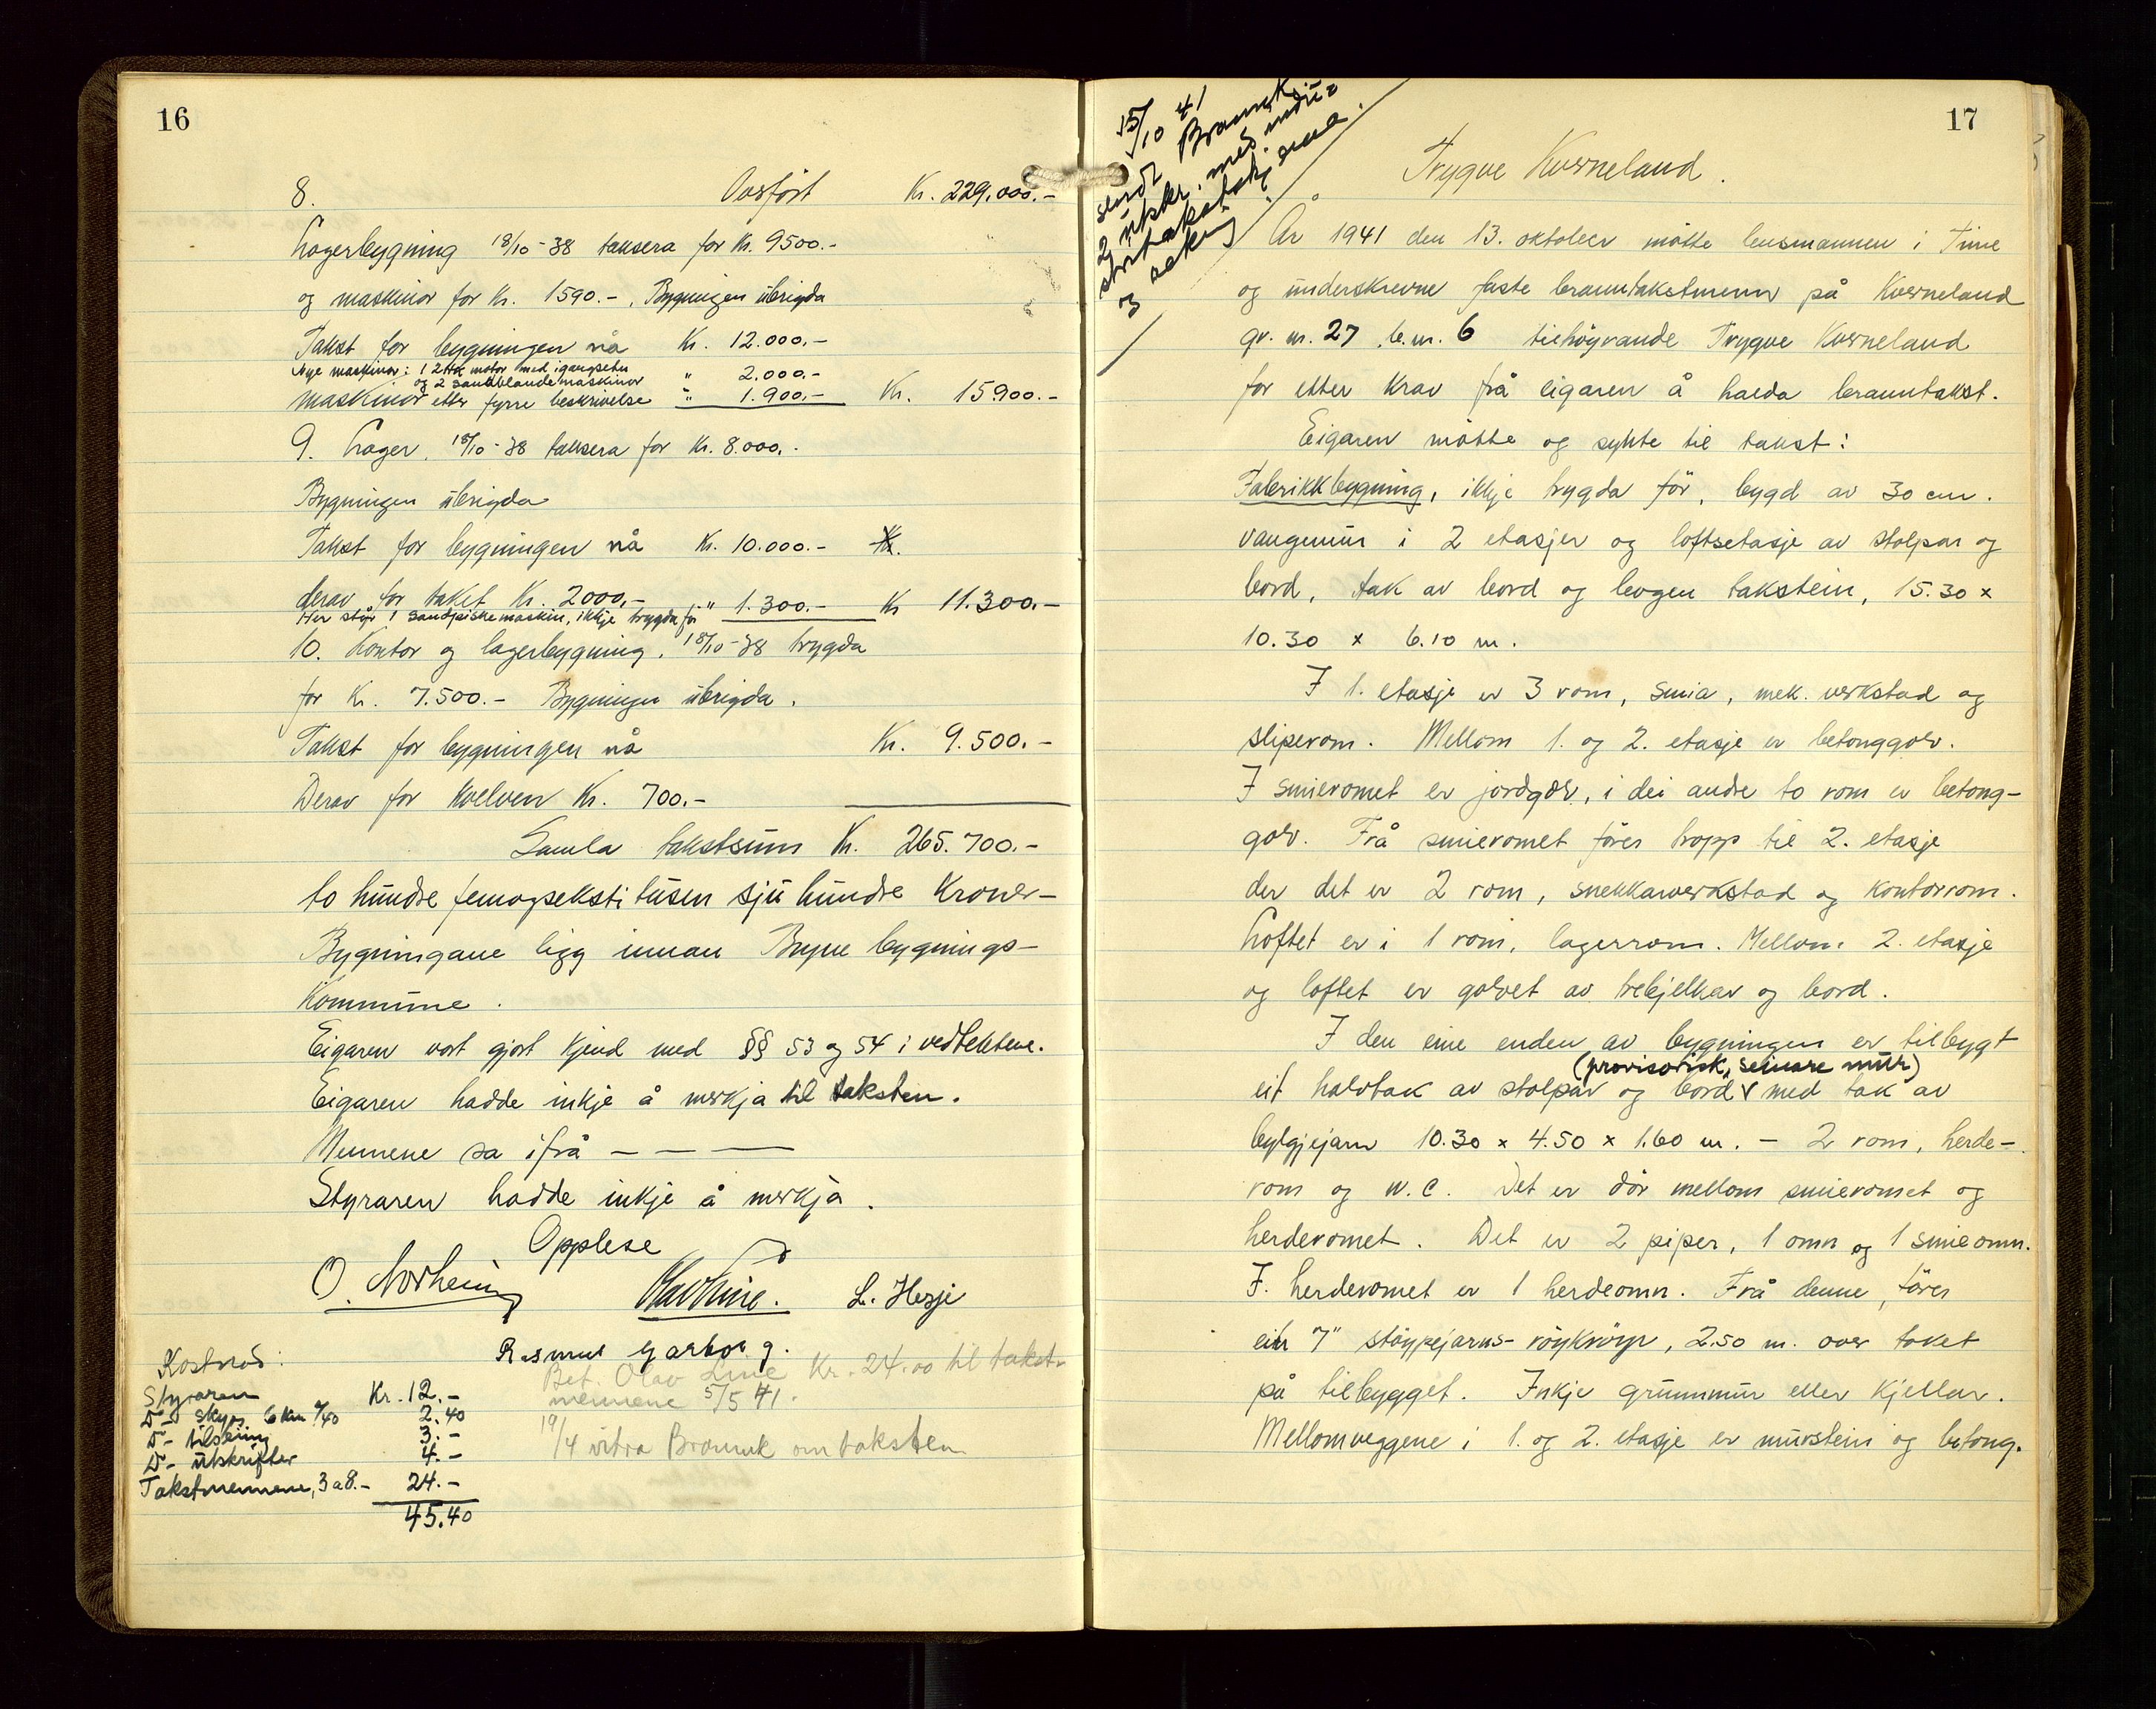 16
8. Overført Kr. 229.000.-
Lagerbygning 18/10-38 taksera for Kr. 9500.-
og maskinor for Kr. 1590.-. Bygningen übrigda
Takst for bygningen nå Kr. 12.000.-
Nye maskinor: 1 2 HK motor med igangsetter " 2.000.-
og 2 sandblandemaskinor
maskinor etter fyrre beskrivelse " 1.900.- Kr. 15900.-
9. Lager. 18/10-38 taksera for Kr. 8.000.-
Bygningen übrigda
Takst for bygningen nå Kr. 10.000.- Kr.
derav for taket Kr. 2000.-
Her står 1 sandpiskemaskin, ikkje trygda før " 1.300.- Kr 11.300.-
10. Kontor og lagerbygning. 18/10-38 trygda
for Kr. 7.500.- Bygningen übrigda.
Takst for bygningen nå Kr. 9.500.-
Derav for kvelven Kr. 700.-
Samla takstsum Kr. 265.700.-
to hundre femogseksti tusen sju hundre Kroner-
Bygningane ligg innan Bryne bygnings-
Kommune.
Eigaren vart gjort kjend med §§ 53 og 54 i vedtektene.
Eigaren hadde inkje å merkja til taksten.
Mennene sa ifrå - - -
Styraren hadde inkje å merkja.
Opplese
O. Norheim Olav Line. L. Hesje
Rasmus Garborg.
Bet. Olav Line Kr. 24.00 til takst-
mennene 5/5 41.
19/4 vitra Brannk om taksten
Kostnad:
Styraren Kr. 12.-
Do- skyss 6 km a/40 2.40
Do- tilseiing 3.-
Do- utskrifter 4.-
Takstmennene, 3 a 8.- 24.-
45.40
17
15/10 41
sendt Brannk.
2 utskr. med indu-
stritakstskjema
og rekning
Trygve Kverneland.
År 1941 den 13. oktober møtte lensmannen i Time
og underskrevne faste branntakstmenn på Kverneland
gr. nr. 27 b.nr. 6 tilhøyrande Trygve Kverneland
for etter krav frå eigaren å halda branntakst.
Eigaren møtte og synte til takst:
Fabrikkbygning, ikkje trygda før, bygd av 30 cm.
vangemur i 2 etasjer og loftsetasje av stolpar og
bord, tak av bord og bogen takstein, 15.30 x
10.30 x 6.10 m.
I 1. etasje er 3 rom, smia, mek. verkstad og
sliperom. Mellom 1. og 2. etasje er betonggolv.
I smieromet er jordgolv, i dei andre to rom er betong-
golv. Frå smieromet fører tropp til 2. etasje
der det er 2 rom, snekkarverkstad og kontorrom.
Loftet er i 1 rom, lagerrom. Mellom 2. etasje
og loftet er golvet av trebjelkar og bord.
I den eine enden av bygningen er tilbygt
(provisorisk, seinare mur)
eit halvtak av stolpar og bord v med tak av
bylgjejarn 10.30 x 4.50 x 1.60 m. - 2 rom, herde-
rom og w.c. Det er dør mellom smieromet og
herderomet. Det er 2 piper, 1 omn og 1 smieomn.
I herderomet er 1 herdeomn. Frå denne fører
eit 7" støypejarns-røykrøyr, 2.50 m. over taket
på tilbygget. Inkje grunnmur eller kjellar.
Mellomveggene i 1. og 2. etasje er murstein og betong.